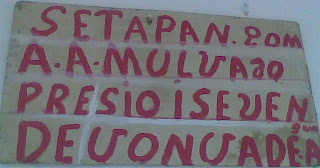 SETAPAN. gom
A.A.MULVaao
PRESIO ISEVEN
DEVONVADEA